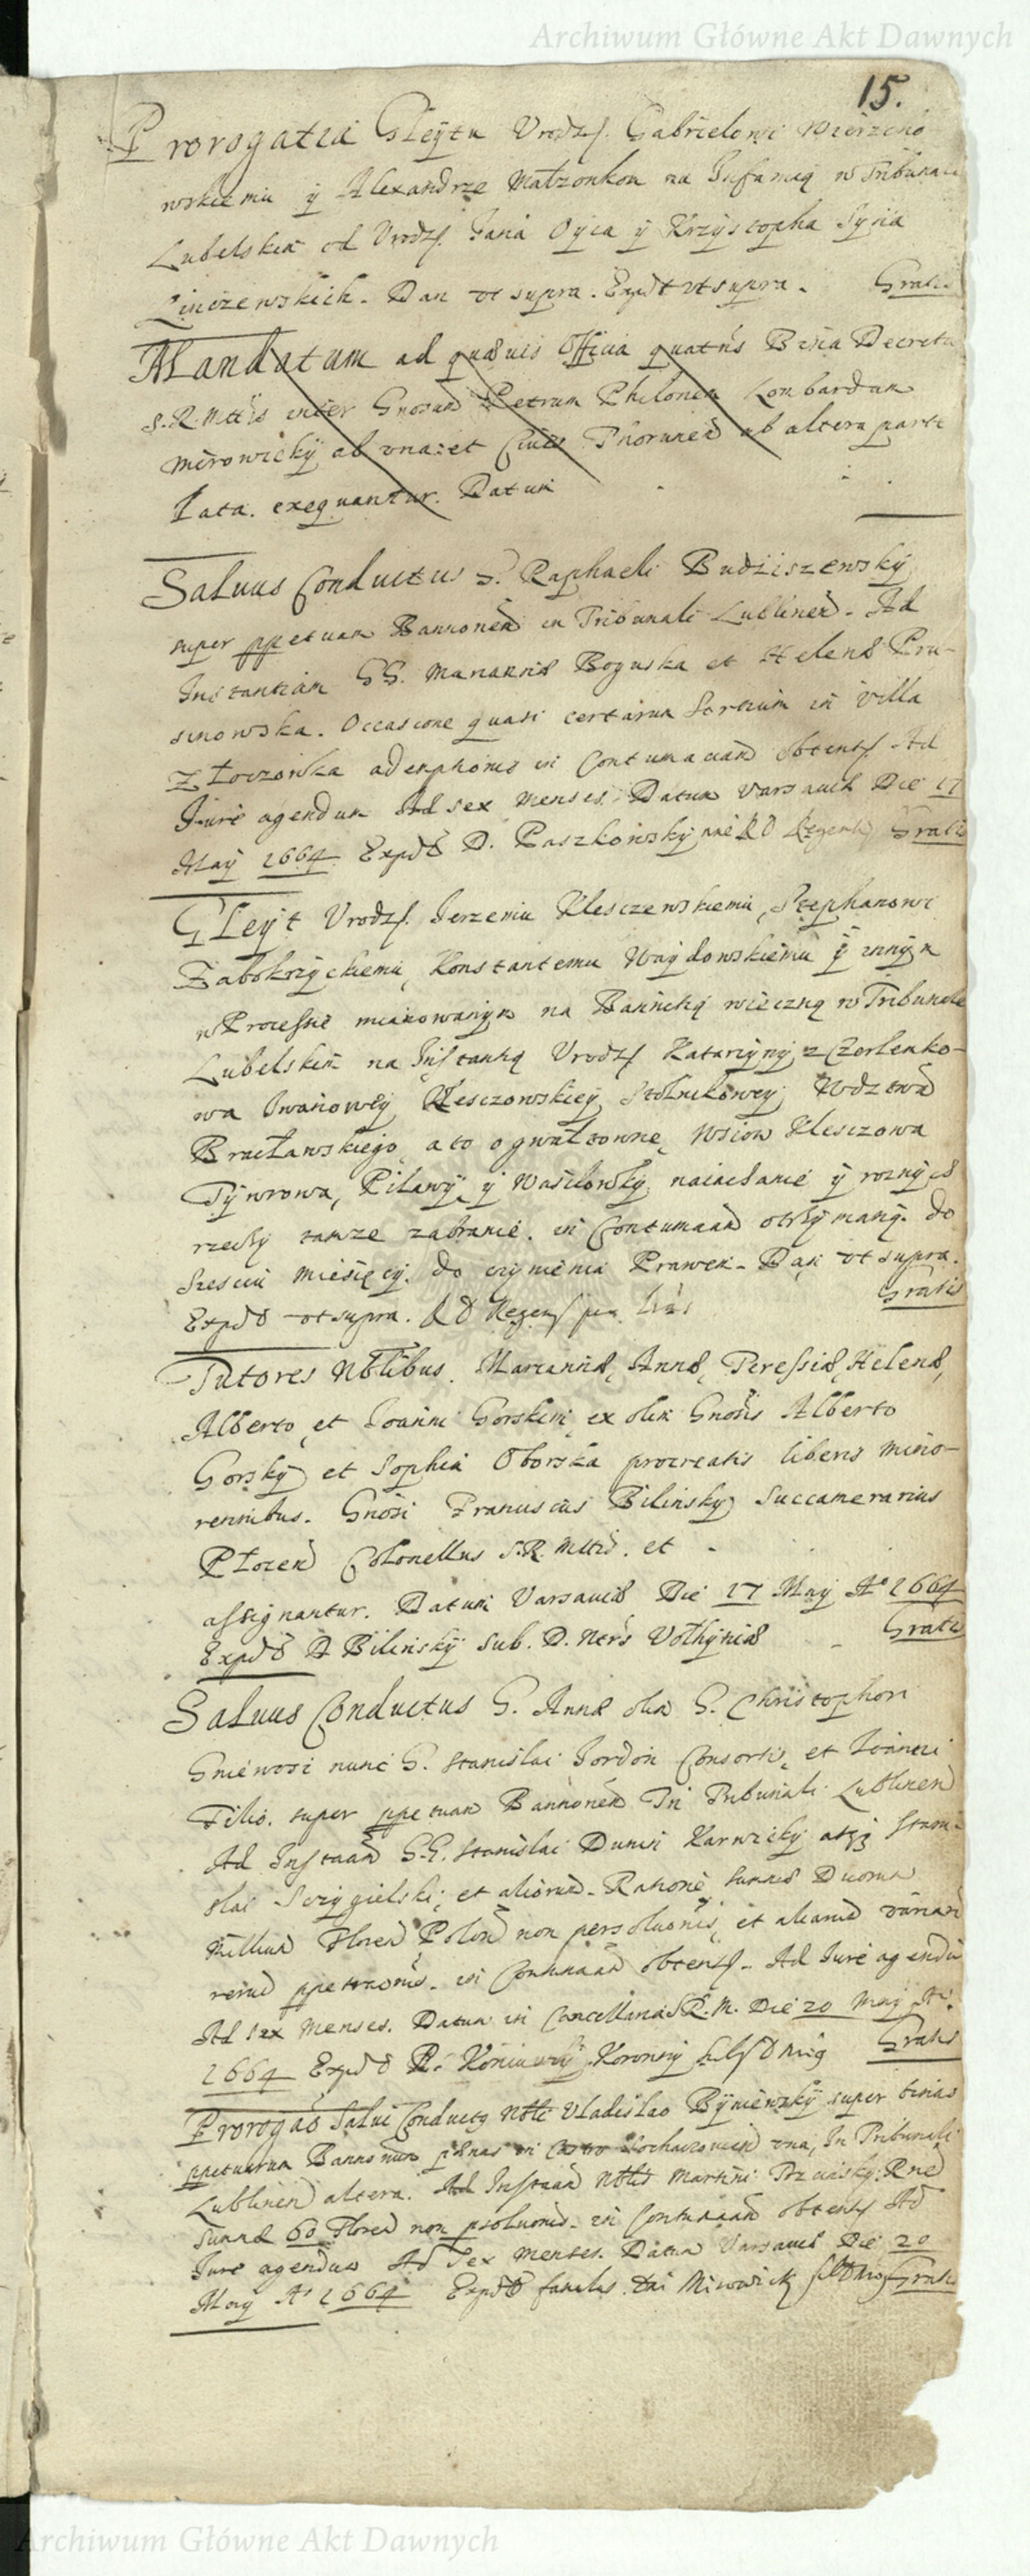 Archiwum Główne Akt Dawnych
15.
Prorogatia Gleytu Urodz. Gabrielowi Wierzcho
wskiemu ÿ Alexandrze Małzonkom na Infamią w Tribunale
Lubelskim od Urodz. Jana Oyca ÿ Krzysztopha Syna
Dan ut supra. Expdt ut supra. Gratis
Mandatum ad quævis Officia quatns Bina Decreta
S.R.Mttis inter Gnosum Petrum Philonem Lombardum
ab una: et Cives Thorunen ab altera parte
Lata. exequantur. Datum
Salvus Conductus G. Raphaeli Budziszewskÿ
super ppetuam Bannonem in Tribunali Lublinen. Ad
Instantiam GG. Mariannæ Boguska et Helenæ Pru-
sinowska. Occasione quasi certarum Sortium in villa
ademptionis in Contumaciam obtent. Ad
Jure agendum Ad sex Menses. Datum Varsaviæ Die 17
Maÿ 1664 Expdt D. Paszkowskÿ Gratis
Gleÿt Urodz. Jerzemu Kleszczewskiemu, Stephanowi
Zabokrzyckiemu, Konstantemu Waydowskiemu ÿ innÿm
w Processie mianowanÿm na Bannitią wieczną w Tribunale
Lubelskim na Instantią Urodz. Katarzÿnÿ z Czerlenko-
wa Iwanowey Kleszczowskieÿ Stolnikoweÿ Wdztwa
Bracławskiego, a to o gwałtowne Wsiow Kleszczowa
Tÿwrowa, Pilawÿ ÿ Wasilowkÿ naiachanie ÿ roznÿch
rzeczÿ tamze zabranie. in Contumaciam otrzÿmaną. do
Szesciu Miesięcÿ. do czynienia Prawem. Dan ut supra.
Expdt ut supra. Gratis
Tutores Nblibus. Mariannæ, Annæ, Teressiæ, Helenæ,
Alberto, et Joanni Gorskim, ex olim Gnosis Alberto
Gorskÿ et Sophia Oborska procreatis liberis mino-
rennibus. Gnosi Franciscus Bilinskÿ Succamerarius
Płocen Colonellus S.R.Mttis. et
assignantur. Datum Varsaviæ Die 17 Maÿ A° 1664
Expdt D Bilinskÿ Sub. D. Volhÿniæ Gratis
Salvus Conductus G. Annæ olim G. Christophori
Gniewosz nunc G. Stanislai Jordan Consortis, et Joanni
Filio. super ppetuam Bannonem In Tribunali Lublinen
Ad Instaam G.G. Stanislai Dunin Karwickÿ atqz Stani-
slai et aliorum. Ratione summæ Duorum
Millium Floren Polon non persolutionis, et aliarum
rerum ppetraonis. in Contumaam obtent. Ad Jure agendum
Ad sex Menses. Datum in Cancellaria S.R.M. Die 20 Maÿ A°.
1664 Expdt Gratis
Prorogao Salvi Conductq Nbli Vladislao super binas
ppetuarum Bannonum pænas in Castro Sochaczovien una, In Tribunali
Lublinen altera. Ad Instaam Nblis Martini Rne
Summæ 60 Floren non psolutionis. in Contumaam obtent Ad
Jure agendum Ad Sex Menses. Datum Varsaviæ Die 20
Maÿ A° 1664 Expdt Gratis
Archiwum Główne Akt Dawnych